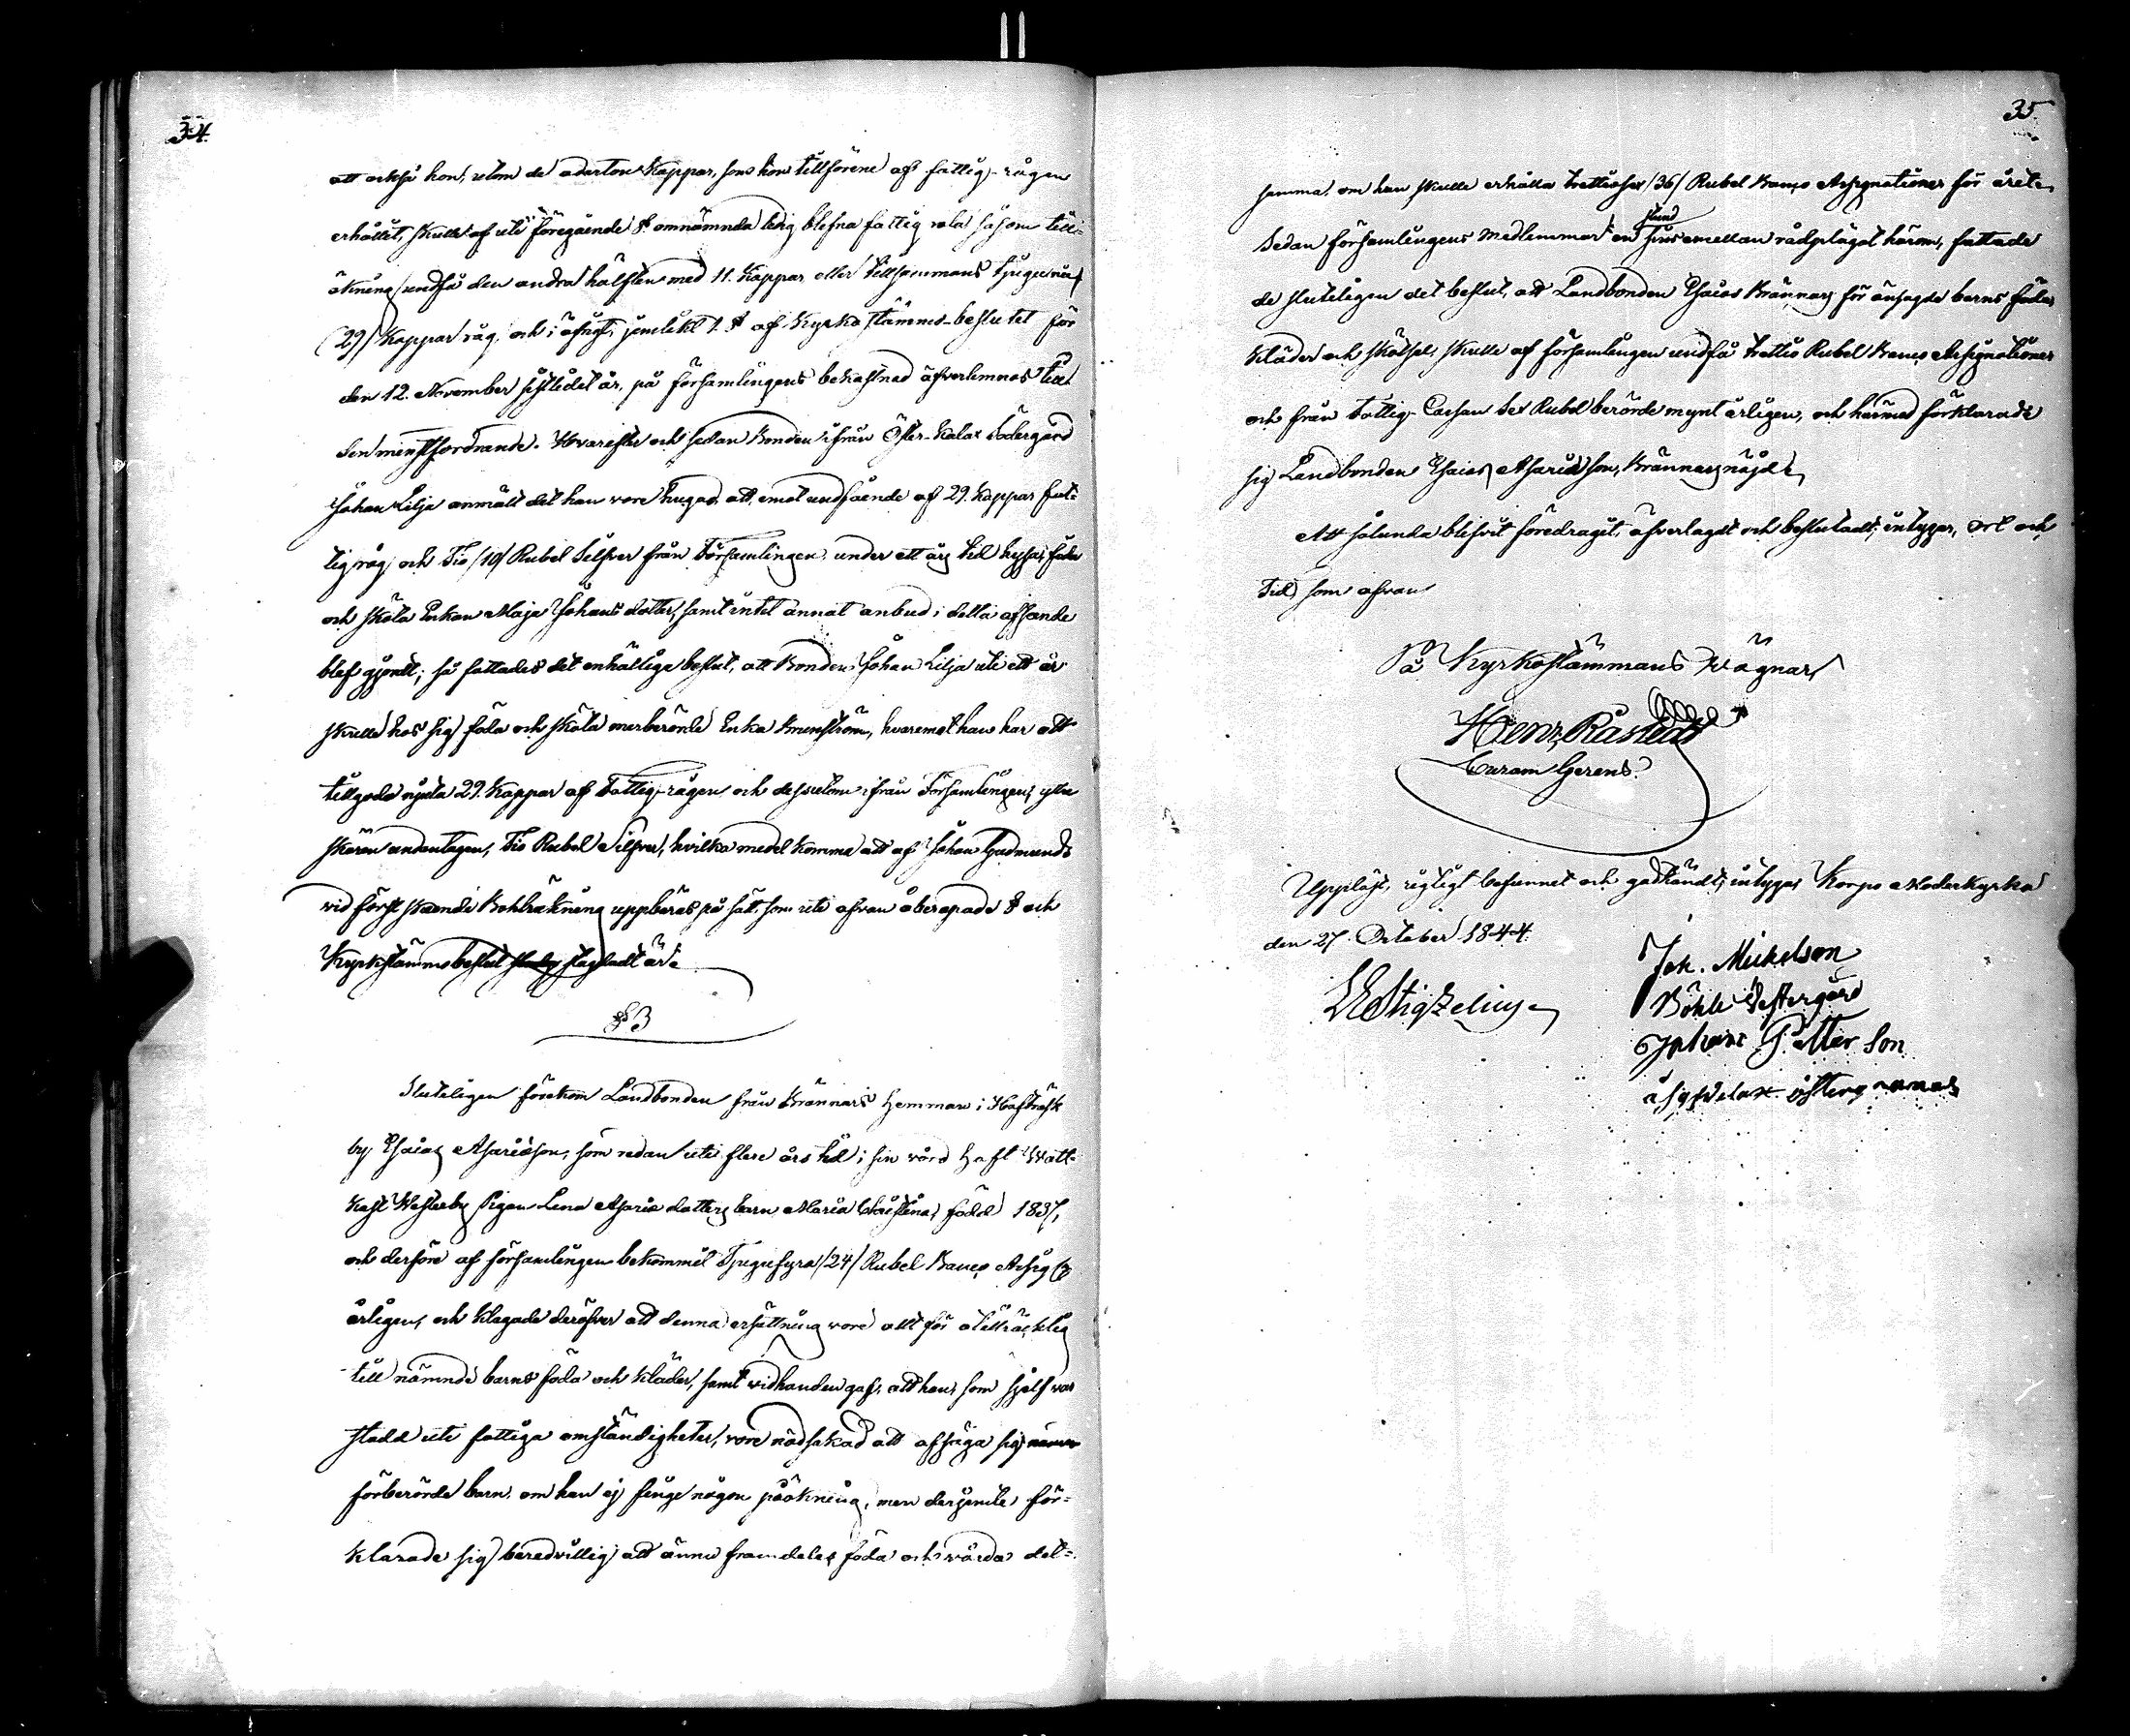 34.
att också hon, utom de aderton Kappar, som hon tillförene af fattig-rågen
erhållit, skulle af uti föregående §. omnämnda ledig blefna fattig rote såsom till-
ökning undfå den andra hälften med 11. Kappar eller tillsammans tjugunio
(29) Kappar råg, och i öfrigt, jemlikt 1. § af Kyrkostämmo-beslutet för
den 12. November sistledit år, på församlingens bekostnad öfverlemnas till
den minstfordrande. Hvarefter och sedan Bonden ifrån Öster-Kalax Södergård
Johan Lilja anmält det han vore hugad att emot undfående af 29. Kappar fat-
tig råg och Tio /10/ Rubel Silfver från Församlingen under ett års tid hysa, föda
och sköta Enkan Maja Johansdotter, samt intet annat anbud i detta afseende
blef gjordt; så fattades det enhälliga beslut, att Bonden Johan Lilja uti ett år
skulle hos sig föda och sköta merberörde Enka Brunström, hvaremot han har att
tillgodo njuta 29. Kappar af Fattig-rågen och dessutom ifrån Församlingen, yttre
skären undantagen, Tio Rubel Silfver, hvilka medel komma att af Johan Gudmunds
vid först skeende Bohlräkning uppbäras på sätt, som uti ofvan åberopade § och
Kyrkstämmobeslut stadgadt är.
§ 3
Sluteligen förekom Landbonden från Brännars Hemman i Hafträsk
by, Esaias Asariæson, som redan uti flere års tid i sin vård haft Watt-
kast Westerby Pigan Lena Asariædotters barn Maria Christina, född 1837,
och derföre af församlingen bekommit Tjugufyra /24/ Rubel Banco Assig
årligen, och klagade deröfver att denna ersättning vore allt för otillräcklig
till nämnde barns föda och kläder, samt vidhanden gaf, att han, som sjelf var
stadd uti fattiga omständigheter, vore nödsakad att afsäga sig
förberörde barn, om han ej finge någon påökning, men derjemte för-
klarade sig beredvillig att ännu framdeles föda och vårda det-
35.
samma, om han skulle erhålla trettiosex /36/ Rubel Banco Assignationer för året.
Sedan församlingens Medlemmar en stund sins emellan rådplägat härom, fattade
de sluteligen det beslut, att Landbonden Esaias Brännars för önsagde barns föda,
kläder och skötsel, skulle af församlingen undfå trettio Rubel Banco Assignationer
och från Fattig-Cassan sex Rubel berörde mynt årligen, och härmed förklarade
sig Landbonden Esaias Asariæson Brännars nöjd.
Att sålunda blifvit föredragit, öfverlagdt och beslutadt, intygar, ort och
tid som ofvan
På Kyrkostämmans vägnar
Henr. Råstedt
Curam Gerens.
Uppläst, rigtigt befunnet och godkändt, intygas, Korpo Moderkyrka
den 27. October 1844.
Joh. Mickelson
Böhle Vestergård
Johan Petterson